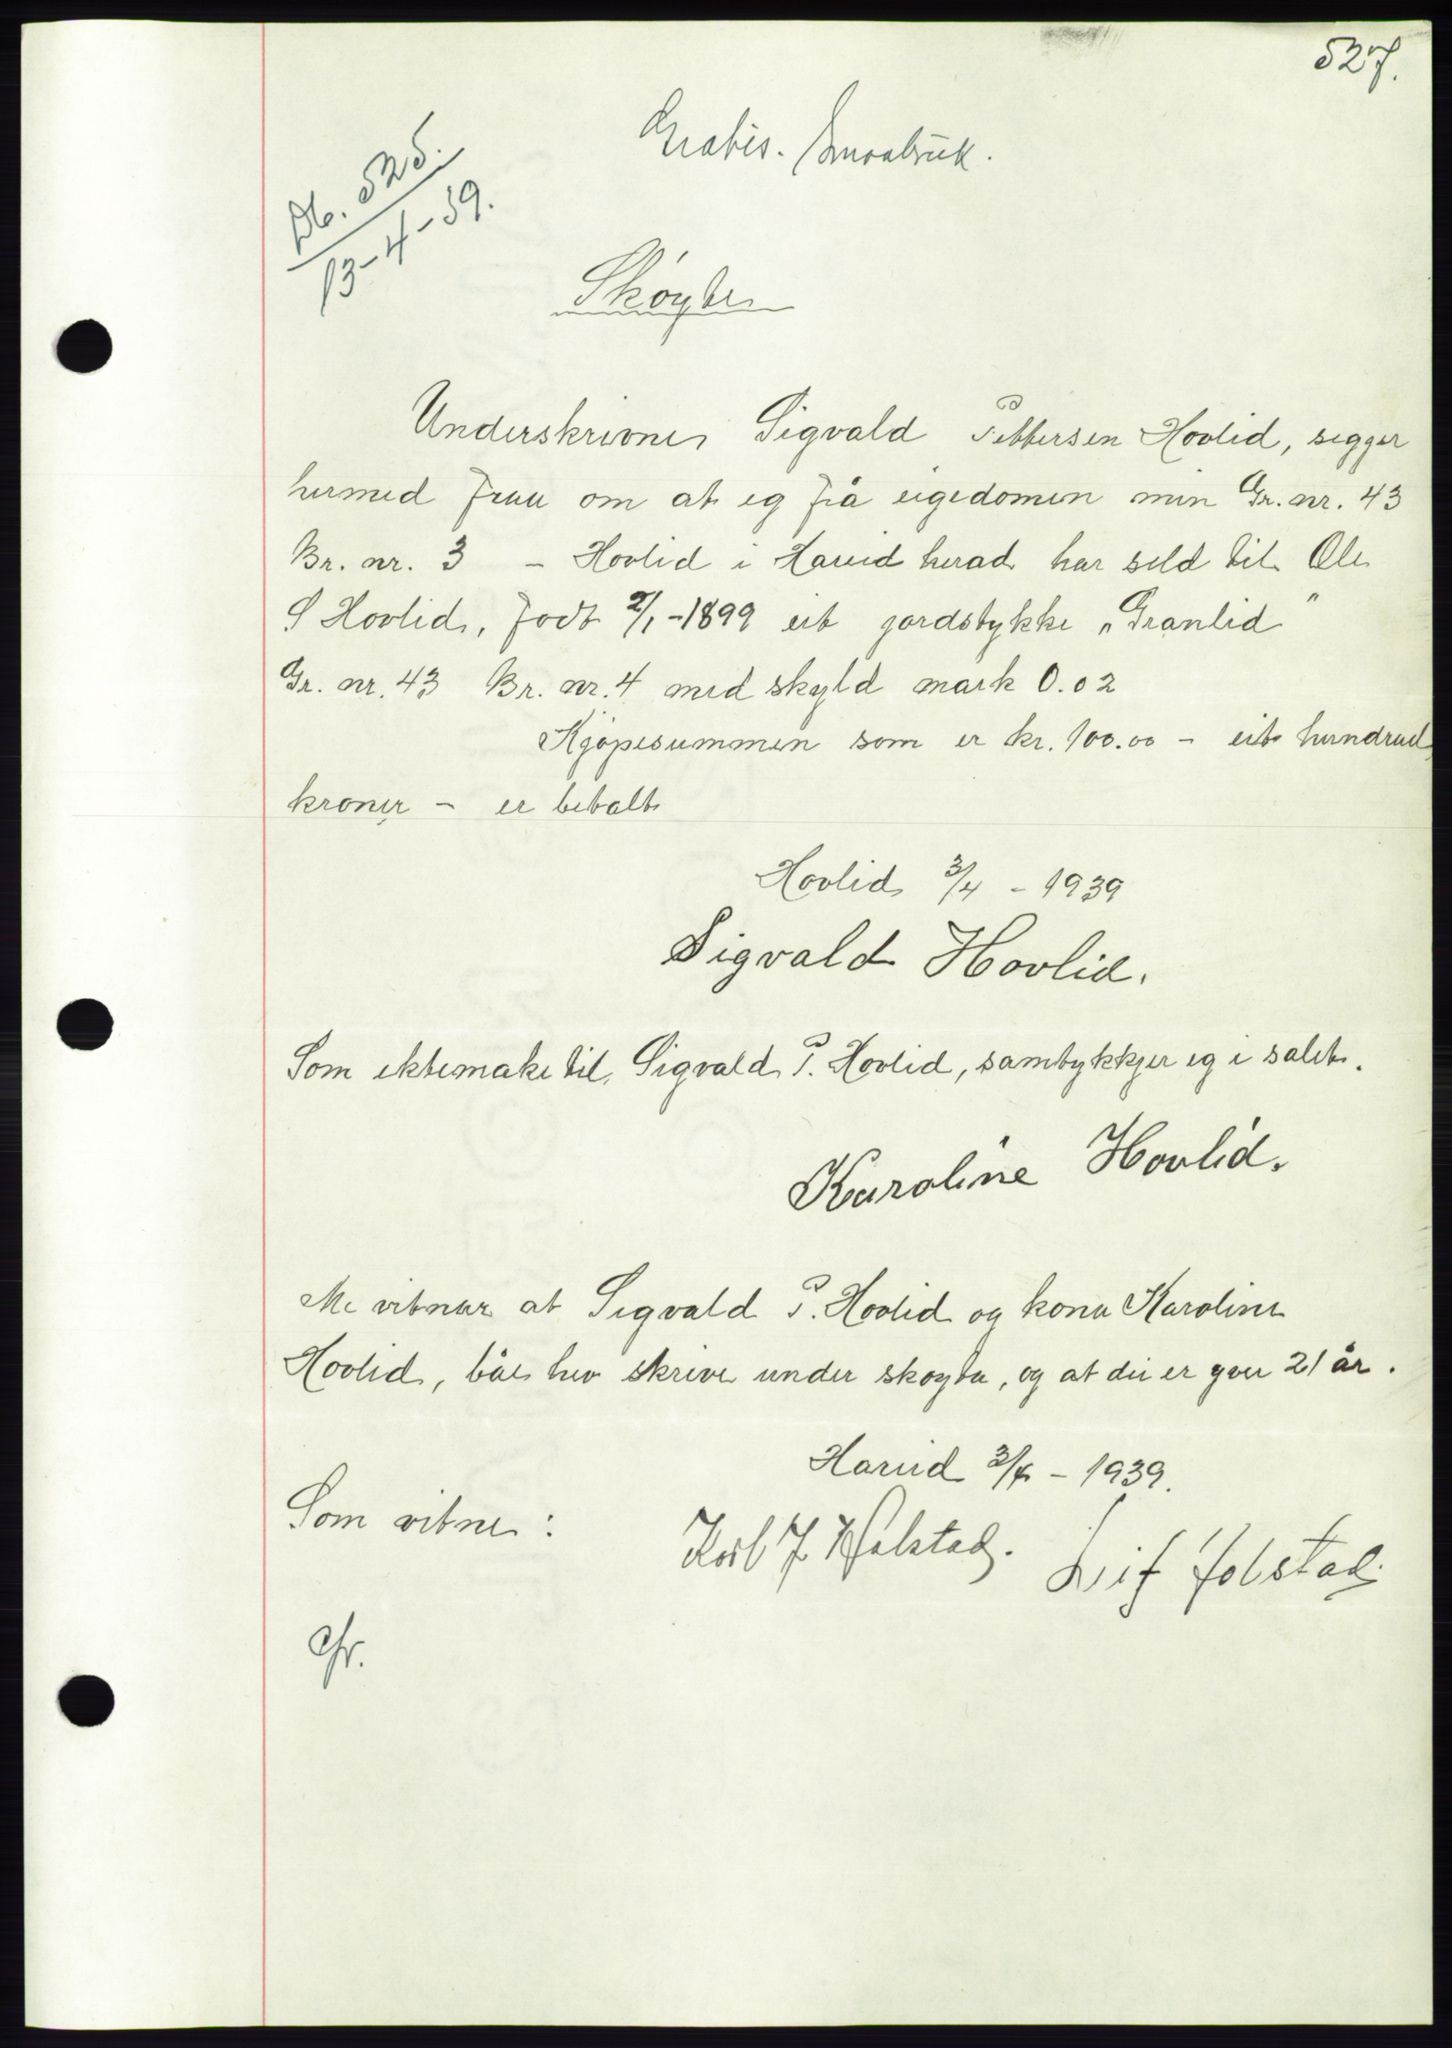 527.
Gratis. Smaabruk.
Db. 525.
13-4-39.
Skøyte
Underskrivne, Sigvald Pettersen Hovlid, segger
hermed fraa om at eg frå eigedomen min Gr. nr. 43
Br. nr. 3 – Hovlid i Hareid herad har seld til Ole
S Hovlid, født 2/1-1899 eit jordstykke „Granlid"
Gr. nr. 43 Br. nr. 4 med skyld mark 0.02
Kjøpesummen som er kr. 100.00 – eit hundrad
kroner – er betalt
Hovlid 3/4 – 1939
Sigvald Hovlid.
Som ektemake til Sigvald P. Hovlid, samtykkjer eg i salet.
Karoline Hovlid.
Me vitnar at Sigvald P. Hovlid og kona Karoline
Hovlid, båe hev skrive under skøyta, og at dei er yver 21 år.
Hareid 3/4 – 1939.
Som vitne: J. Holstad. Leif Holstad.